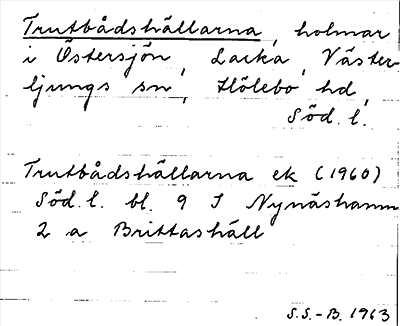 Trutbådshällarna, holmar
i Östersjön, Lacka, Väster-
ljungs sn, Hölebo hd,
Söd. l.
Trutbådshällarna ek (1960)
Söd. l. bl. 9 I Nynäshamn
2 a Brittashäll
S.S.-B. 1963